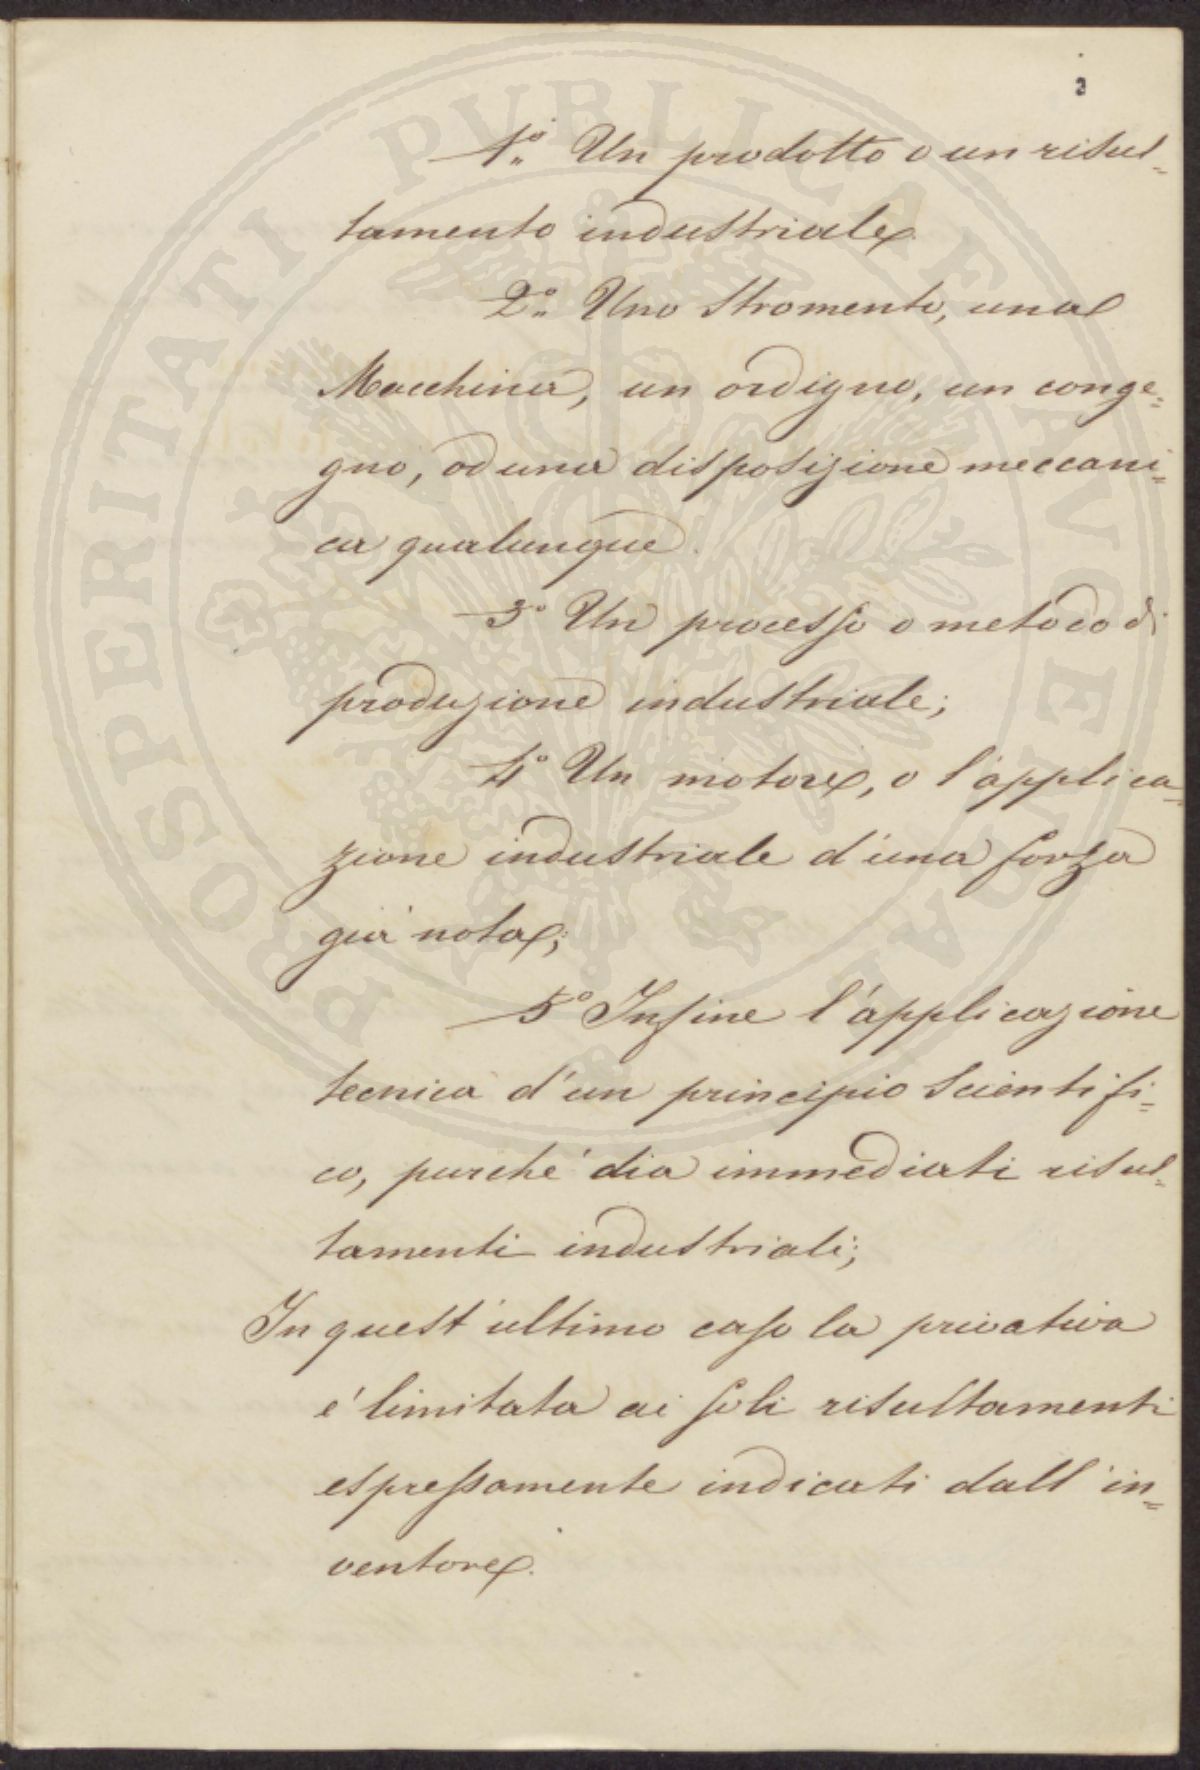 2
1.° Un prodotto o un risul=
tamento industriale.
2.° Uno stromento, una
Macchina, un ordigno, un conge=
gno, od una disposizione meccani=
ca qualunque.
3° Un processo o metodo di
produzione industriale;
4° Un motore, o l'applica=
zione industriale d'una forza
già nota;
5° Infine l'applicazione
tecnica d'un principio scientifi=
co, purché dia immediati risul=
tamenti industriali;
In quest'ultimo caso la privativa
é limitata ai soli risultamenti
espressamente indicati dall'in=
ventore.
PROSPERITATI PUBLICAE AVGENDAE